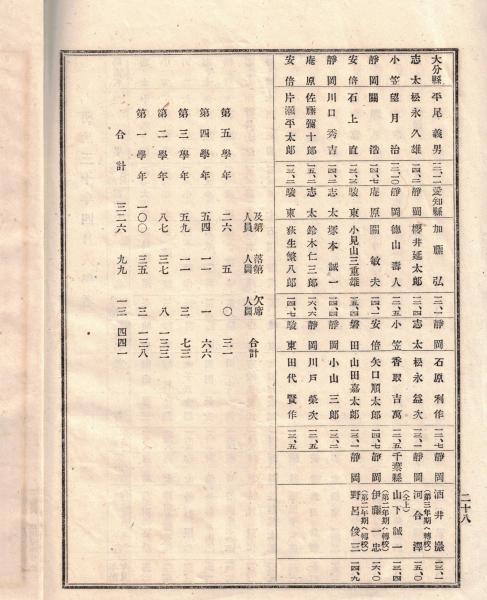 大分縣 平尾義男 一三、二
志太 松永久雄 一四、二
小笠 望月治 一三、一〇
靜岡 關浩 一四、二
安倍 石上直 一三、三
靜岡 川口秀吉 一四、二
庵原 佐藤彌十郎 一五、二
安倍 片瀨平太郎 一三、二
愛知縣 加藤弘 一三、一
靜岡 櫻井延太郎 一三、四
靜岡 德山壽人 一三、五
庵原 關敏夫 一四、一
駿東 小見山三重雄 一五、四
志太 塚本誠一 一四、四
志太 鈴木仁三郎 一六、六
駿東 荻生繁八郎 一四、七
靜岡 石原利作 一二、七
志太 松永益次 一三、一
小笠 香取吉萬 一二、五
安倍 矢口順太郎 一四、七
磐田 山田嘉太郎 一三、一
靜岡 小山三郎 一三、二
靜岡 川戶榮次 一二、五
駿東 田代賢作 一三、五
靜岡 酒井巖 一三、一
(第三年期ヘ轉校)
靜岡 河合澤 一五、〇
(仝上)
千葉縣 山下誠一 一三、四
(第二年期ヘ轉校)
靜岡 伊藤一忠 一六、〇
(第二年期ヘ轉校)
靜岡 野呂俊三 一四、九
及第人員 落第人員 欠席人員 合計
第五學年 二六 五 〇 三一
第四學年 五四 一一 一 六六
第三學年 五九 一一 三 七三
第二學年 八七 三七 八 一三二
第一學年 一〇〇 三五 三 一三八
合計 三二六 九九 一三 四四一
二十八